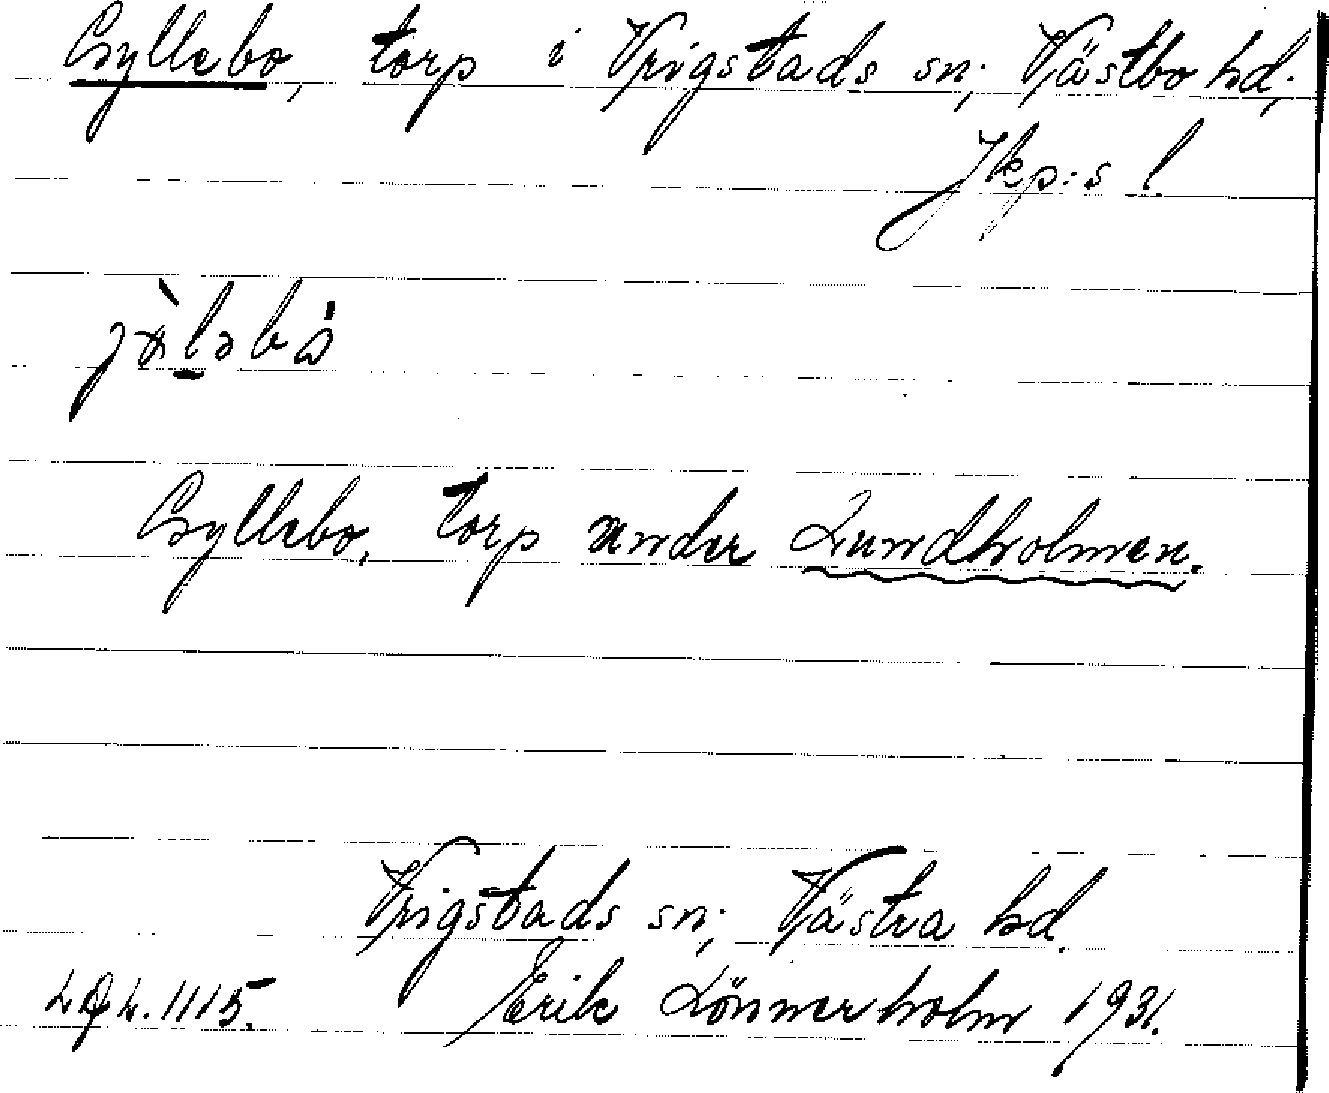 Gyllebo, torp i Vrigstads sn; Västbo hd;
Jkp:s l
Gyllebo, torp under Lundholmen.
Vrigstads sn; Västra hd.
1115. Erik Lönnerholm 1931.